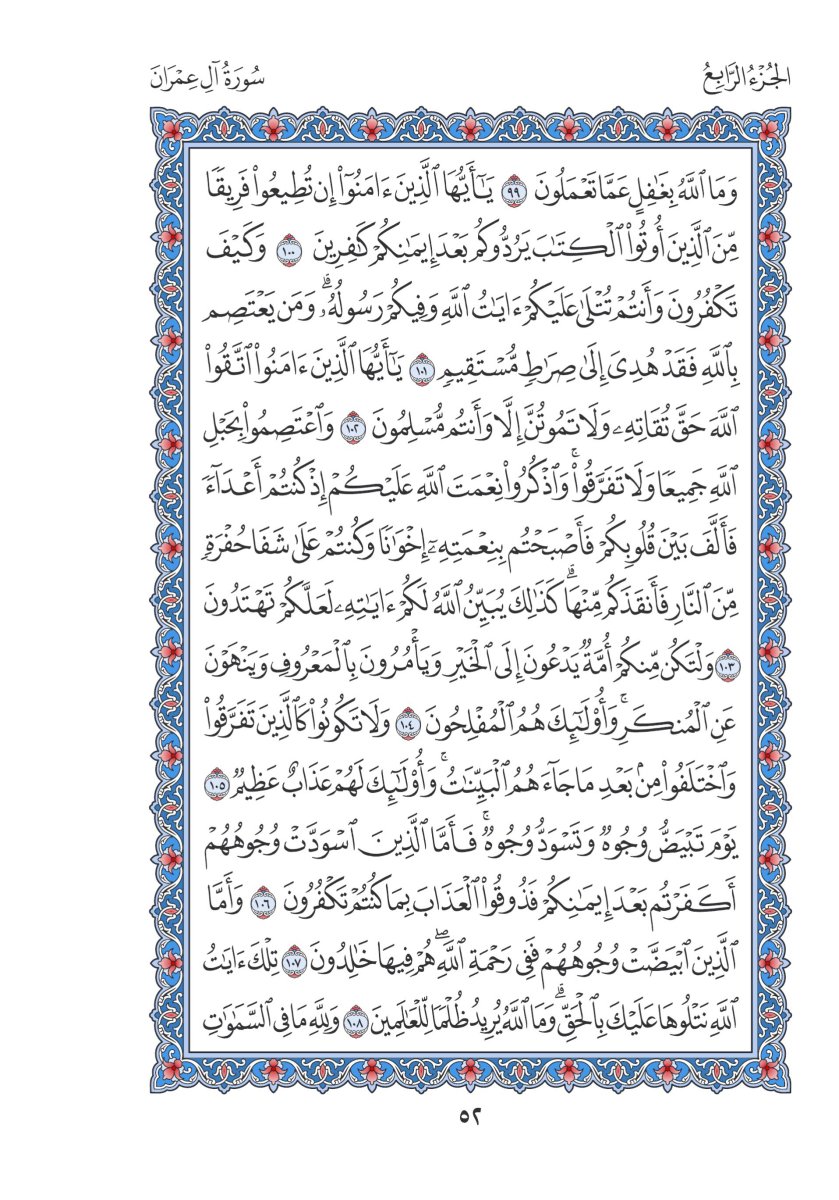 الجُزْءُ الرَّابِعُ
سُورَةُ آلِ عِمْرَانَ
وَمَا ٱللَّهُ بِغَٰفِلٍ عَمَّا تَعْمَلُونَ ٩٩ يَٰٓأَيُّهَا ٱلَّذِينَ ءَامَنُوٓا۟ إِن تُطِيعُوا۟ فَرِيقًا
مِّنَ ٱلَّذِينَ أُوتُوا۟ ٱلْكِتَٰبَ يَرُدُّوكُم بَعْدَ إِيمَٰنِكُمْ كَٰفِرِينَ ١٠٠ وَكَيْفَ
تَكْفُرُونَ وَأَنتُمْ تُتْلَىٰ عَلَيْكُمْ ءَايَٰتُ ٱللَّهِ وَفِيكُمْ رَسُولُهُۥ ۗ وَمَن يَعْتَصِم
بِٱللَّهِ فَقَدْ هُدِىَ إِلَىٰ صِرَٰطٍ مُّسْتَقِيمٍ ١٠١ يَٰٓأَيُّهَا ٱلَّذِينَ ءَامَنُوا۟ ٱتَّقُوا۟
ٱللَّهَ حَقَّ تُقَاتِهِۦ وَلَا تَمُوتُنَّ إِلَّا وَأَنتُم مُّسْلِمُونَ ١٠٢ وَٱعْتَصِمُوا۟ بِحَبْلِ
ٱللَّهِ جَمِيعًا وَلَا تَفَرَّقُوا۟ ۚ وَٱذْكُرُوا۟ نِعْمَتَ ٱللَّهِ عَلَيْكُمْ إِذْ كُنتُمْ أَعْدَآءً
فَأَلَّفَ بَيْنَ قُلُوبِكُمْ فَأَصْبَحْتُم بِنِعْمَتِهِۦٓ إِخْوَٰنًا وَكُنتُمْ عَلَىٰ شَفَا حُفْرَةٍ
مِّنَ ٱلنَّارِ فَأَنقَذَكُم مِّنْهَا ۗ كَذَٰلِكَ يُبَيِّنُ ٱللَّهُ لَكُمْ ءَايَٰتِهِۦ لَعَلَّكُمْ تَهْتَدُونَ
١٠٣ وَلْتَكُن مِّنكُمْ أُمَّةٌ يَدْعُونَ إِلَى ٱلْخَيْرِ وَيَأْمُرُونَ بِٱلْمَعْرُوفِ وَيَنْهَوْنَ
عَنِ ٱلْمُنكَرِ ۚ وَأُو۟لَٰٓئِكَ هُمُ ٱلْمُفْلِحُونَ ١٠٤ وَلَا تَكُونُوا۟ كَٱلَّذِينَ تَفَرَّقُوا۟
وَٱخْتَلَفُوا۟ مِنۢ بَعْدِ مَا جَآءَهُمُ ٱلْبَيِّنَٰتُ ۚ وَأُو۟لَٰٓئِكَ لَهُمْ عَذَابٌ عَظِيمٌ ١٠٥
يَوْمَ تَبْيَضُّ وُجُوهٌ وَتَسْوَدُّ وُجُوهٌ ۚ فَأَمَّا ٱلَّذِينَ ٱسْوَدَّتْ وُجُوهُهُمْ
أَكَفَرْتُم بَعْدَ إِيمَٰنِكُمْ فَذُوقُوا۟ ٱلْعَذَابَ بِمَا كُنتُمْ تَكْفُرُونَ ١٠٦ وَأَمَّا
ٱلَّذِينَ ٱبْيَضَّتْ وُجُوهُهُمْ فَفِى رَحْمَةِ ٱللَّهِ ۖ هُمْ فِيهَا خَٰلِدُونَ ١٠٧ تِلْكَ ءَايَٰتُ
ٱللَّهِ نَتْلُوهَا عَلَيْكَ بِٱلْحَقِّ ۗ وَمَا ٱللَّهُ يُرِيدُ ظُلْمًا لِّلْعَٰلَمِينَ ١٠٨ وَلِلَّهِ مَا فِى ٱلسَّمَٰوَٰتِ
٥٢